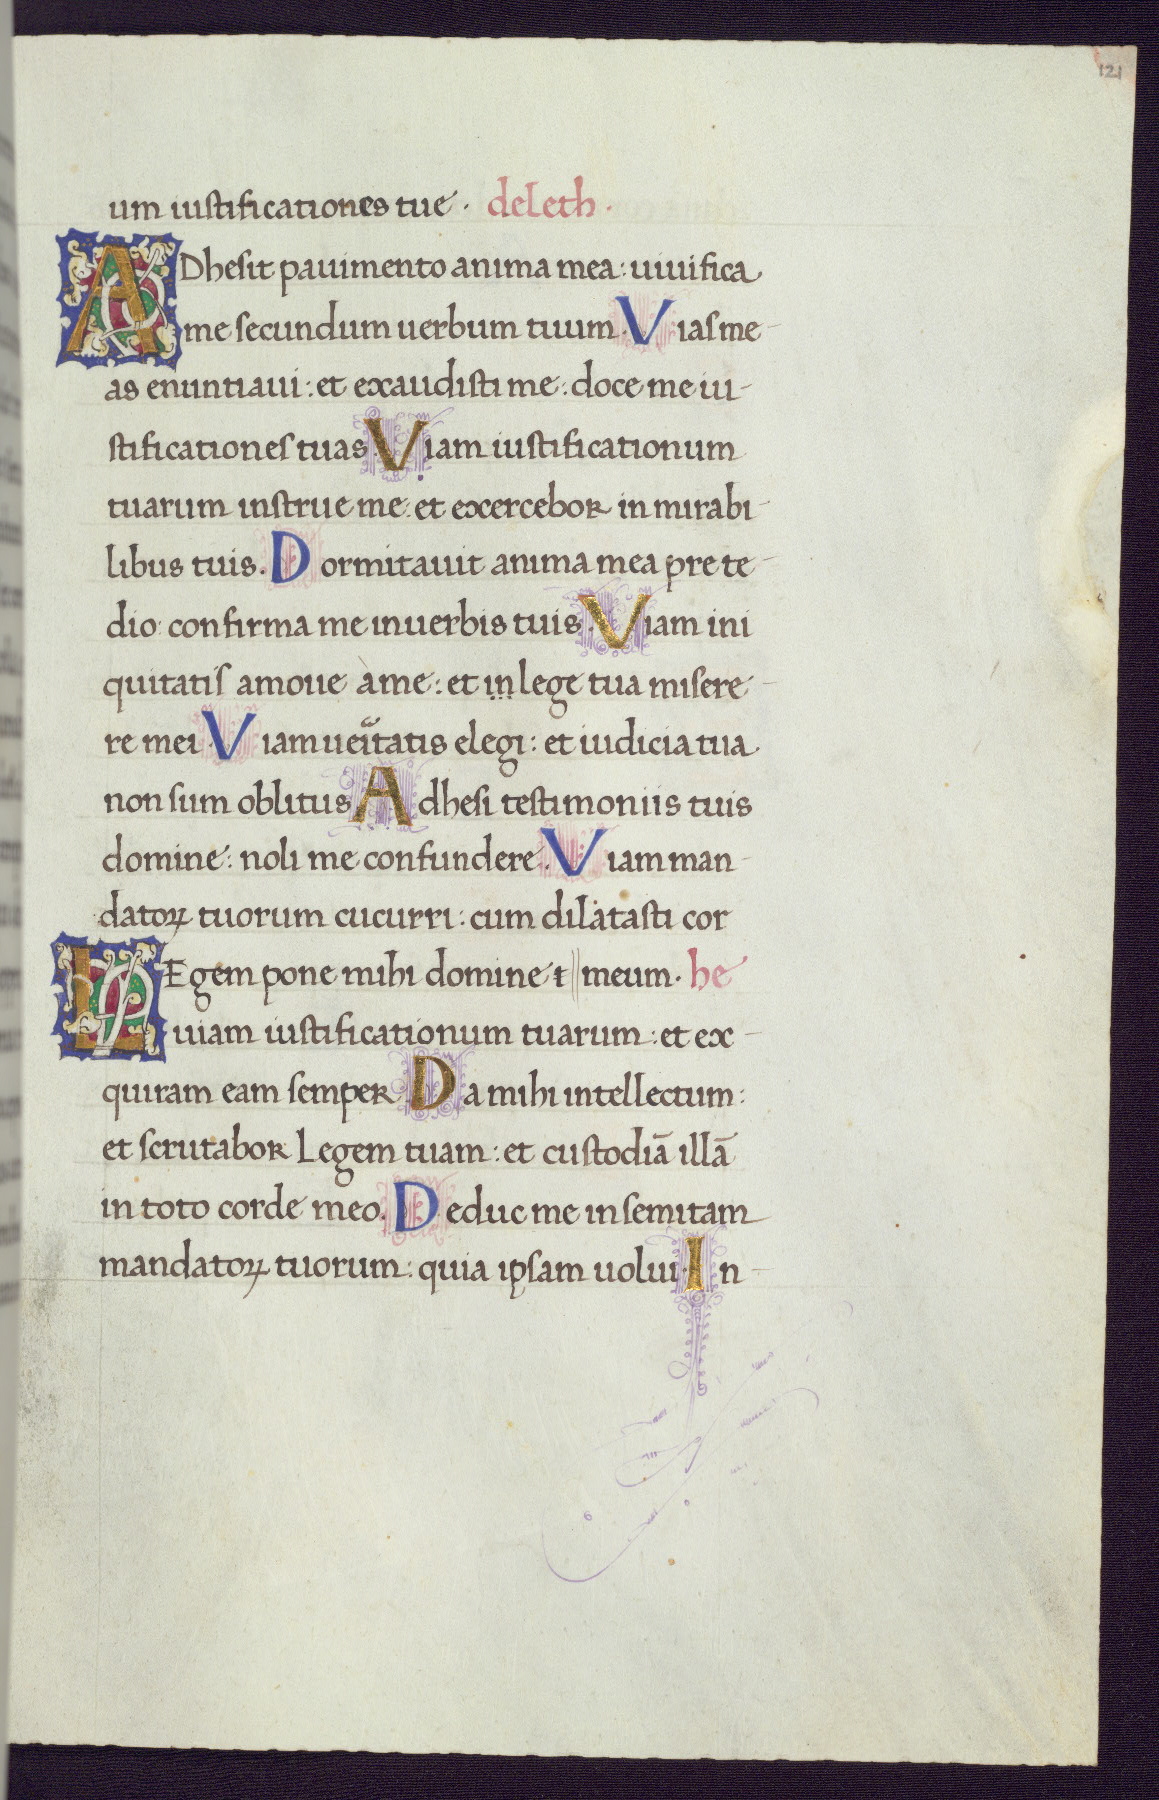 121
um iustificationes tue · deleth ·
ADhesit pauimento anima mea : uiuifica
me secundum uerbum tuum. Vias me-
as enuntiaui : et exaudisti me : doce me iu-
stificationes tuas. Viam iustificationum
tuarum instrue me : et excercebor in mirabi-
libus tuis. Dormitauit anima mea pre te-
dio : confirma me in uerbis tuis. Viam ini
quitatis amoue à me : et in lege tua misere-
re mei. Viam ueritatis elegi : et iudicia tua
non sum oblitus. Adhesi testimoniis tuis
domine : noli me confundere. Viam man-
datoꝝ tuorum cucurri : cum dilatasti cor
LEgem pone mihi domine ⁊ || meum · he
uiam iustificationum tuarum : et ex-
quiram eam semper. Da mihi intellectum :
et scrutabor Legem tuam : et custodiā illā
in toto corde meo. Deduc me in semitam
mandatoꝝ tuorum : quia ipsam uolui. In-